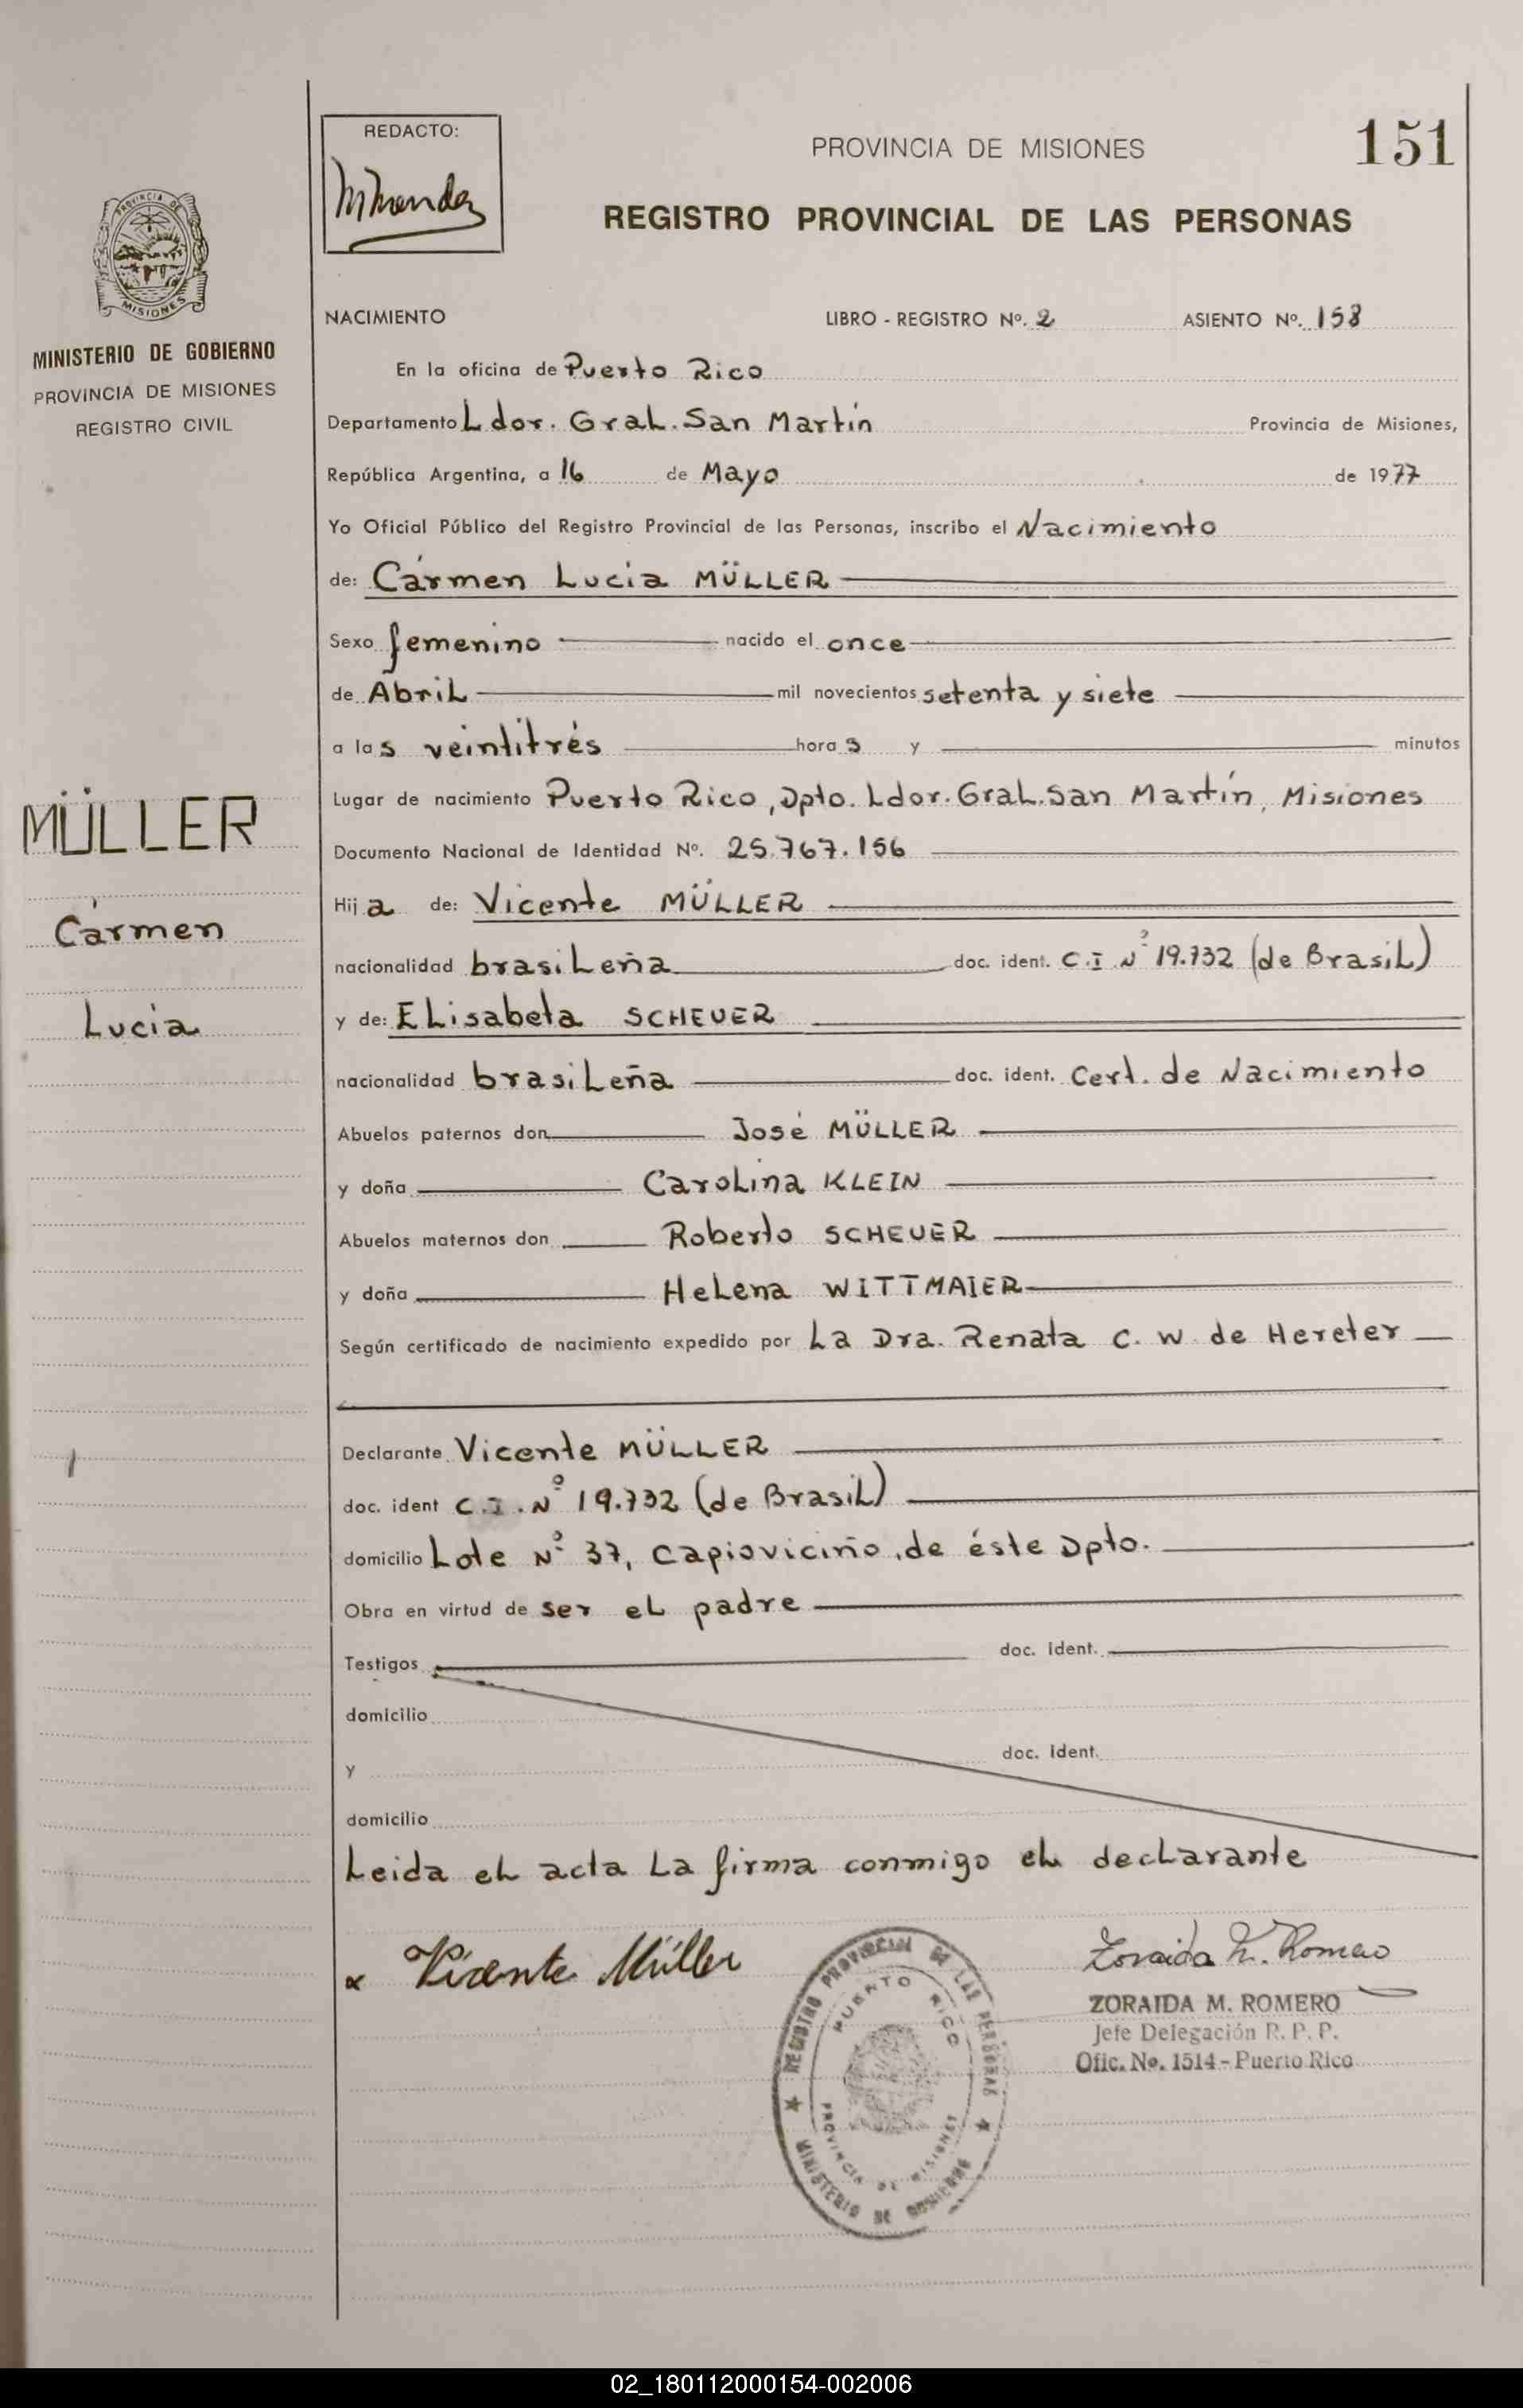 REDACTO:
PROVINCIA DE MISIONES
151
REGISTRO PROVINCIAL DE LAS PERSONAS
PROVINCIA DE
MISIONES
MINISTERIO DE GOBIERNO
PROVINCIA DE MISIONES
REGISTRO CIVIL
NACIMIENTO LIBRO - REGISTRO Nº. 2 ASIENTO Nº. 158
En la oficina de Puerto Rico
Departamento Ldor. Gral. San Martín Provincia de Misiones,
República Argentina, a 16 de Mayo de 1977
Yo Oficial Público del Registro Provincial de las Personas, inscribo el Nacimiento
de: Cármen Lucia MÜLLER
Sexo femenino nacido el once
de Abril mil novecientos setenta y siete
a las veintitrés horas y minutos
Lugar de nacimiento Puerto Rico, Dpto. Ldor. Gral. San Martín, Misiones
Documento Nacional de Identidad Nº. 25.767.156
Hija de: Vicente MÜLLER
nacionalidad brasileña doc. ident. C.I. Nº 19.732 (de Brasil)
y de: Elisabeta SCHEUER
nacionalidad brasileña doc. ident. Cert. de Nacimiento
Abuelos paternos don José MÜLLER
y doña Carolina KLEIN
Abuelos maternos don Roberto SCHEUER
y doña Helena WITTMAIER
Según certificado de nacimiento expedido por La Dra. Renata C. W de Hereter
Declarante Vicente MÜLLER
doc. ident C.I. Nº 19.732 (de Brasil)
domicilio Lote Nº 37, Capioviciño, de éste Dpto.
Obra en virtud de ser el padre
Testigos doc. ident.
domicilio
y doc. ident.
domicilio
Leida el acta la firma conmigo el declarante
MÜLLER
Cármen
Lucia
x Vicente Müller
Zoraida M. Romero
ZORAIDA M. ROMERO
Jefe Delegación R. P. P.
Ofic. No. 1514 - Puerto Rico
REGISTRO PROVINCIAL DE LAS PERSONAS
PUERTO RICO
PROVINCIA DE MISIONES
MINISTERIO DE GOBIERNO
02_180112000154-002006